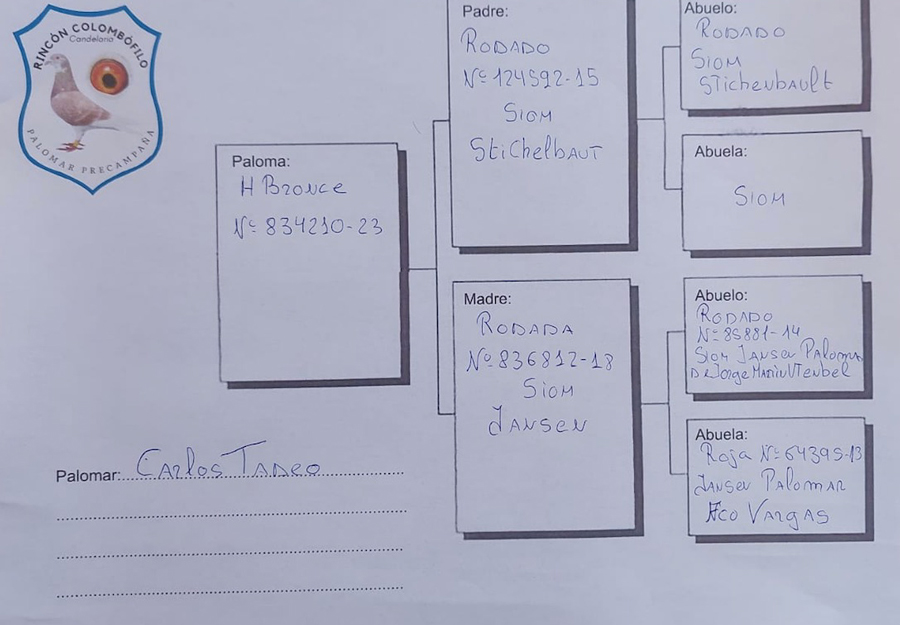 RINCÓN COLOMBÓFILO
Candelaria
PALOMAR PRECAMPAÑA
Paloma:
H BRONCE
Nº 834210-23
Padre:
RODADO
Nº 124592-15
SION
STICHELBAUT
Madre:
RODADA
Nº 836812-18
SION
JANSEN
Abuelo:
RODADO
SION
STichenbault
Abuela:
SION
Abuelo:
RODADO
Nº 85881-14
SION JANSEN PALOMAR
DE Jorge
Abuela:
Roja Nº 64395-13
JANSEN PALOMAR
Fco VARGAS
Palomar: CARLOS TADEO